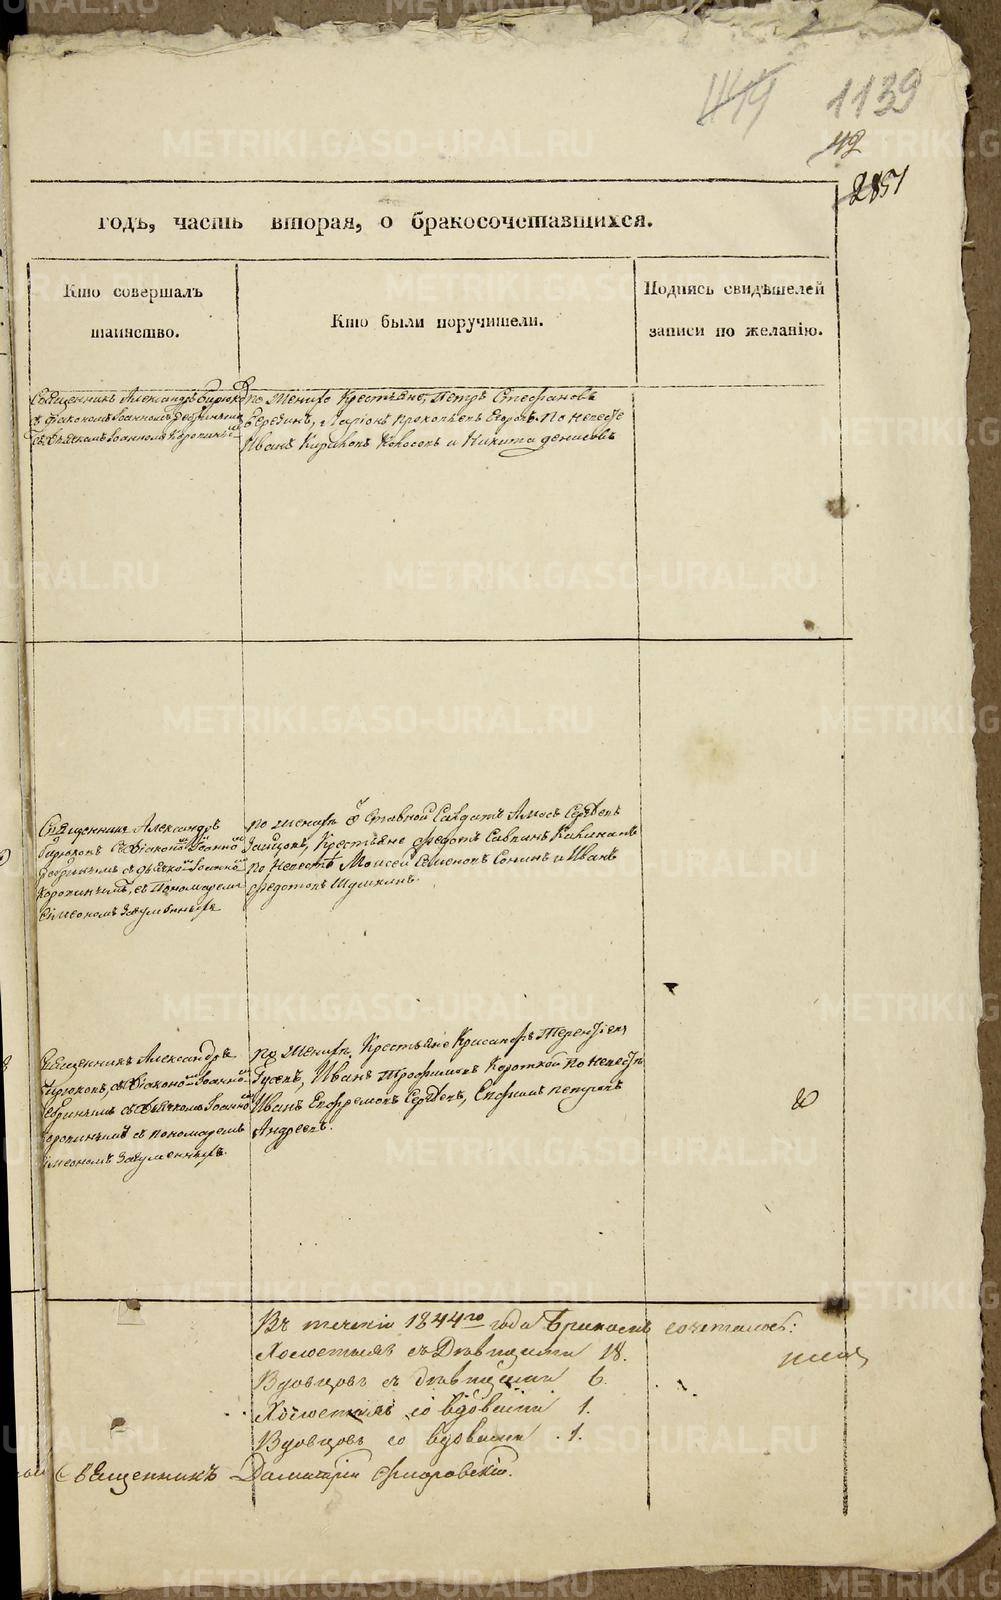 1139
42
2851
годъ, часть вторая, о бракосочетавшихся.
Кто совершалъ таинство.
Кто были поручители.
Подпись свидѣтелей записи по желанію.
Священникъ Александръ Бирюков
съ Діакономъ Іоанномъ
съ Дьячкомъ Іоанномъ Коропинымъ
по Женихѣ Крестьяне, Петръ Стефановъ
Бередипъ, Иларіонъ Прокопьевъ Егоровъ. По невестѣ
Иванъ Кириловъ Колосовъ и Никита Денисовъ
Священникъ Александръ
Бирюковъ съ Діакономъ Іоанномъ
съ Дьячкомъ Іоанномъ
Коропинымъ, съ Пономаремъ
Симеономъ
по Женихѣ Отставной Салдатъ Амосъ Сергѣевъ
Зайцовъ, Крестьяне Федотъ Савинъ
По невестѣ Моисей Семеновъ Сонинъ и Иванъ
Федотовъ Шумкинъ.
Священникъ Александръ
Бирюковъ, съ Діакономъ Іоанномъ
съ Дьячкомъ Іоанномъ
Коропинымъ съ пономаремъ
Симеономъ
по Женихѣ, Крестьяне Терентіевъ
Гусевъ, Иванъ Трофимовъ Короткой по невестѣ
Иванъ Ефремовъ Сергѣевъ, Ефимъ
Андреевъ.
Въ теченіи 1844го года Бракомъ сочеталось:
Холостыхъ съ Дѣвицами 18.
Вдовцовъ съ дѣвицами 6.
Холостыхъ со вдовами 1.
Вдовцовъ со вдовами 1.
Священникъ Димитрій Флоровскій.
METRIKI.GASO-URAL.RU